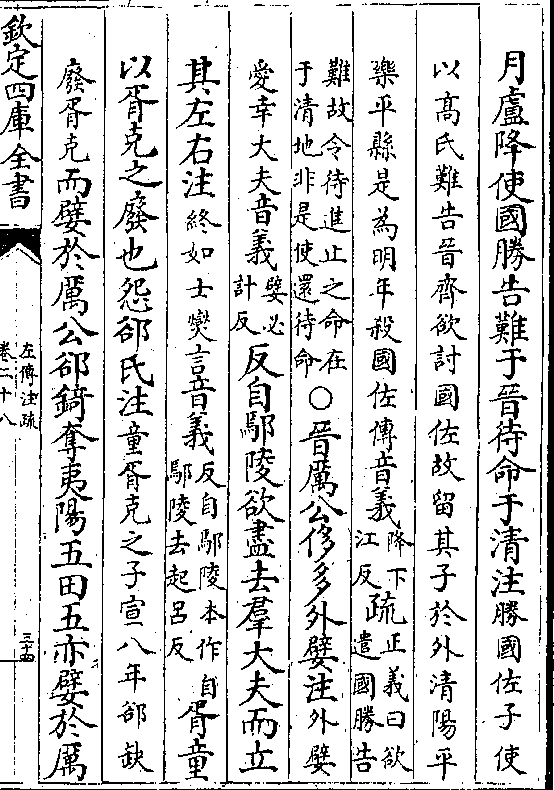 月盧降使國勝告難于晉待命于清注勝國佐子使
以髙氏難告晉齊欲討國佐故留其子於外清陽平
樂平縣是為明年殺國佐傳音義降下江反疏正義曰欲遣國勝告
難故令待進止之命在于清地非是使還待命○晉厲公侈多外嬖注外嬖
愛幸大夫音義嬖必計反反自鄢陵欲盡去羣大夫而立
其左右注終如士燮言音義反自鄢陵本作自鄢陵去起呂反胥童
以胥克之廢也怨郤氏注童胥克之子宣八年郤缺
廢胥克而嬖於厲公郤錡奪夷陽五田五亦嬖於厲
欽定四庫全書
左傳注疏
卷二十八
三十四